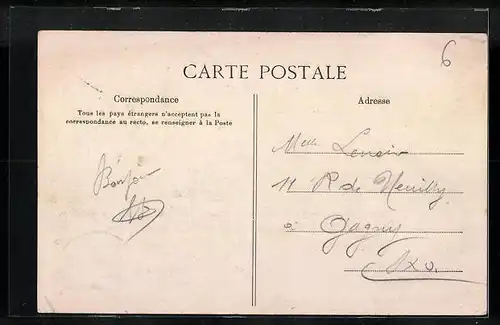 6
CARTE POSTALE
Correspondance
Tous les pays étrangers n'acceptent pas la
correspondance au recto, se renseigner à la Poste
Bonjour
Adresse
Melle Lenoir
11 R de Neuilly
à Gagny